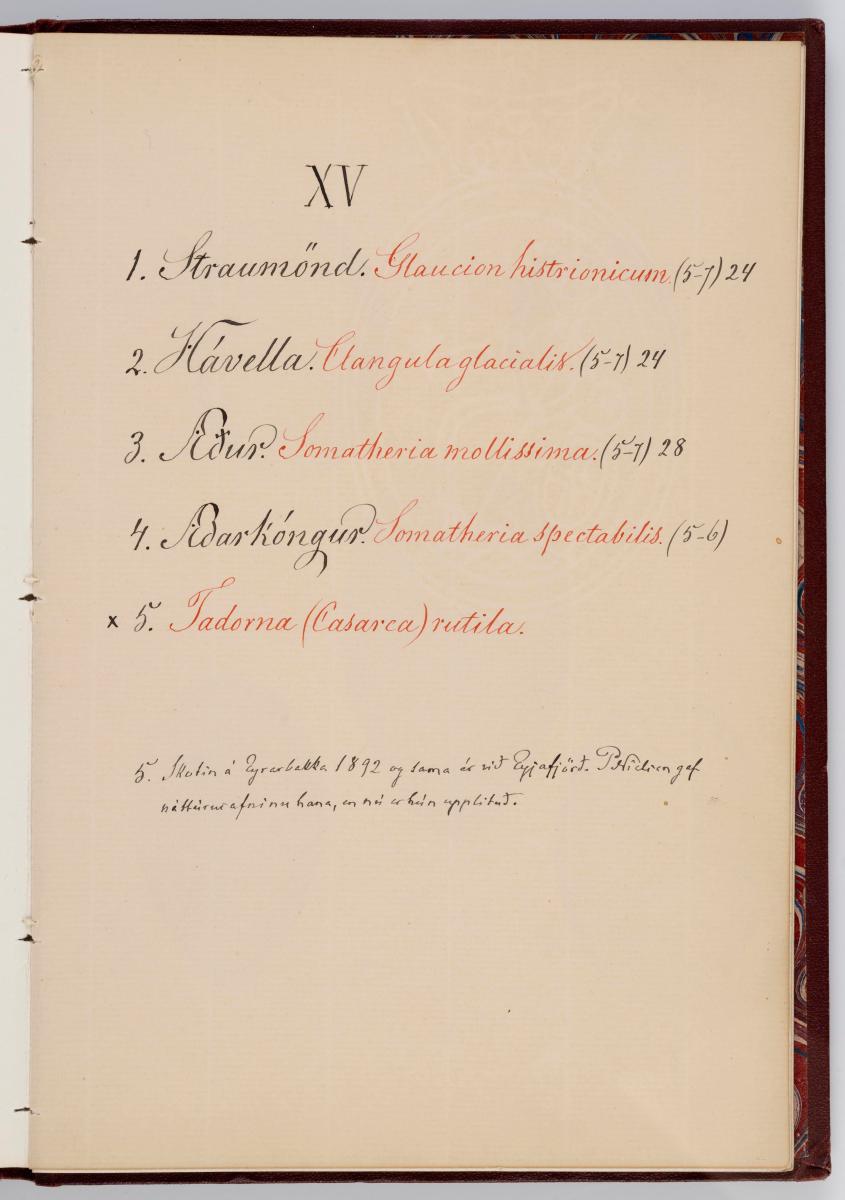 XV
1. Straumönd. Glaucion histrionicum. (5-7) 24
2. Hávella. Clangula glacialis. (5-7) 24
3. Æður. Somatheria mollissima. (5-7) 28
4. Æðarkóngur. Somatheria spectabilis. (5-6)
x 5. Tadorna (Casarca) rutila.
5. Skotin á Eyrarbakka 1892 og sama ár við Eyjafjörð. P. Nielsen gaf
náttúrusafninu hana, en nú er hún upplituð.